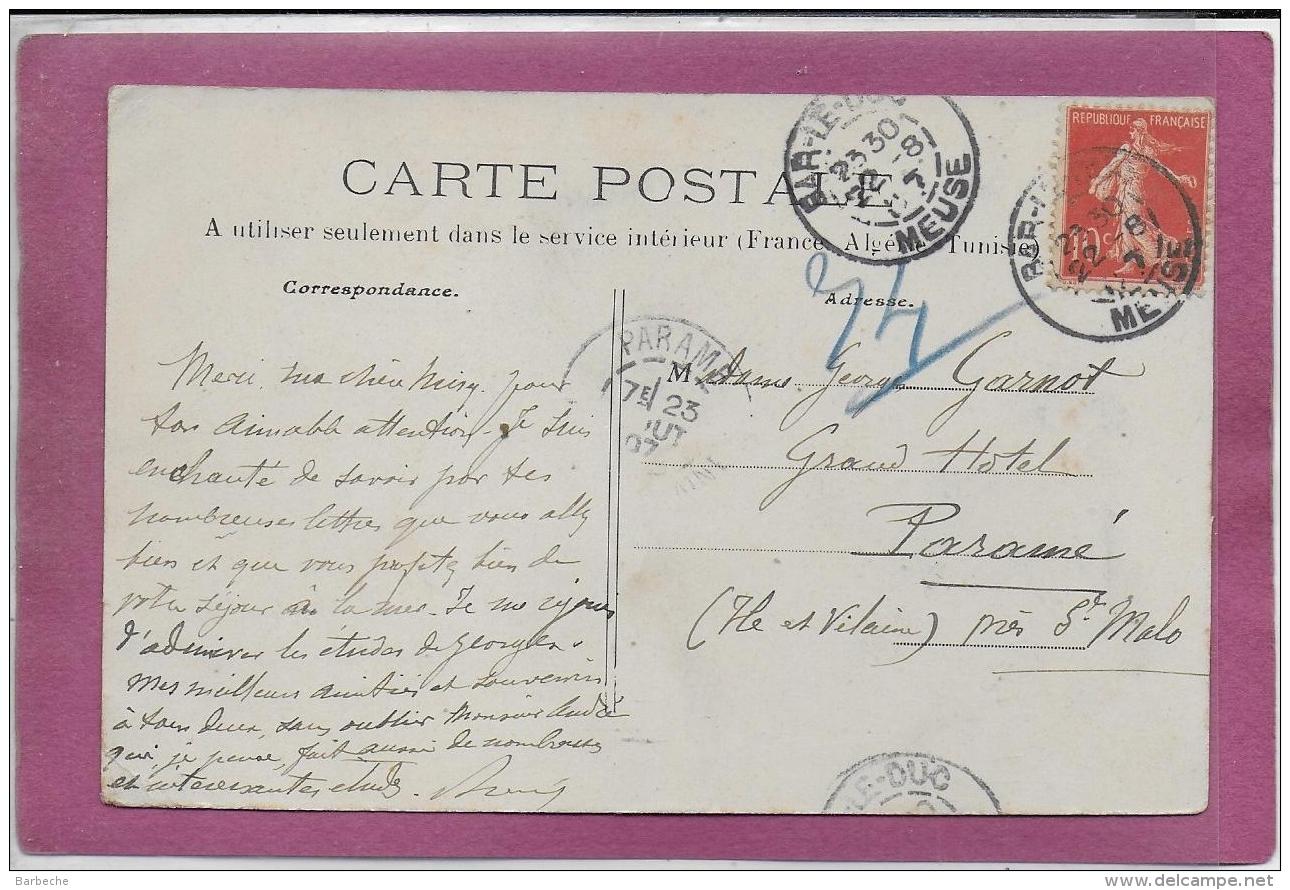 CARTE POSTALE
A utiliser seulement dans le service intérieur (France, Algérie, Tunisie)
Correspondance.
Adresse.
BAR-LE-DUC
23 30
22 -8
MEUSE
REPUBLIQUE FRANÇAISE
10c
BAR-LE
23 30
22 -8
MEUSE
PARAMÉ
7E 23
OUT
07
Merci, ma chère pour
ton aimable attention. Je suis
enchanté de savoir par tes
nombreuses lettres que vous allez
bien et que vous profitez bien de
votre séjour à la mer. Je me réjouis
d'admirer les études de Georges.
Mes meilleurs amitiés et souvenirs
à tous deux, sans oublier Monsieur André
qui, je pense, fait aussi de nombreuses
et intéressantes études.
Madame Georges Garnot
Grand Hotel
Paramé
(Ile et Vilaine) près St Malo
LE-DUC
Barbeche
www.delcampe.net